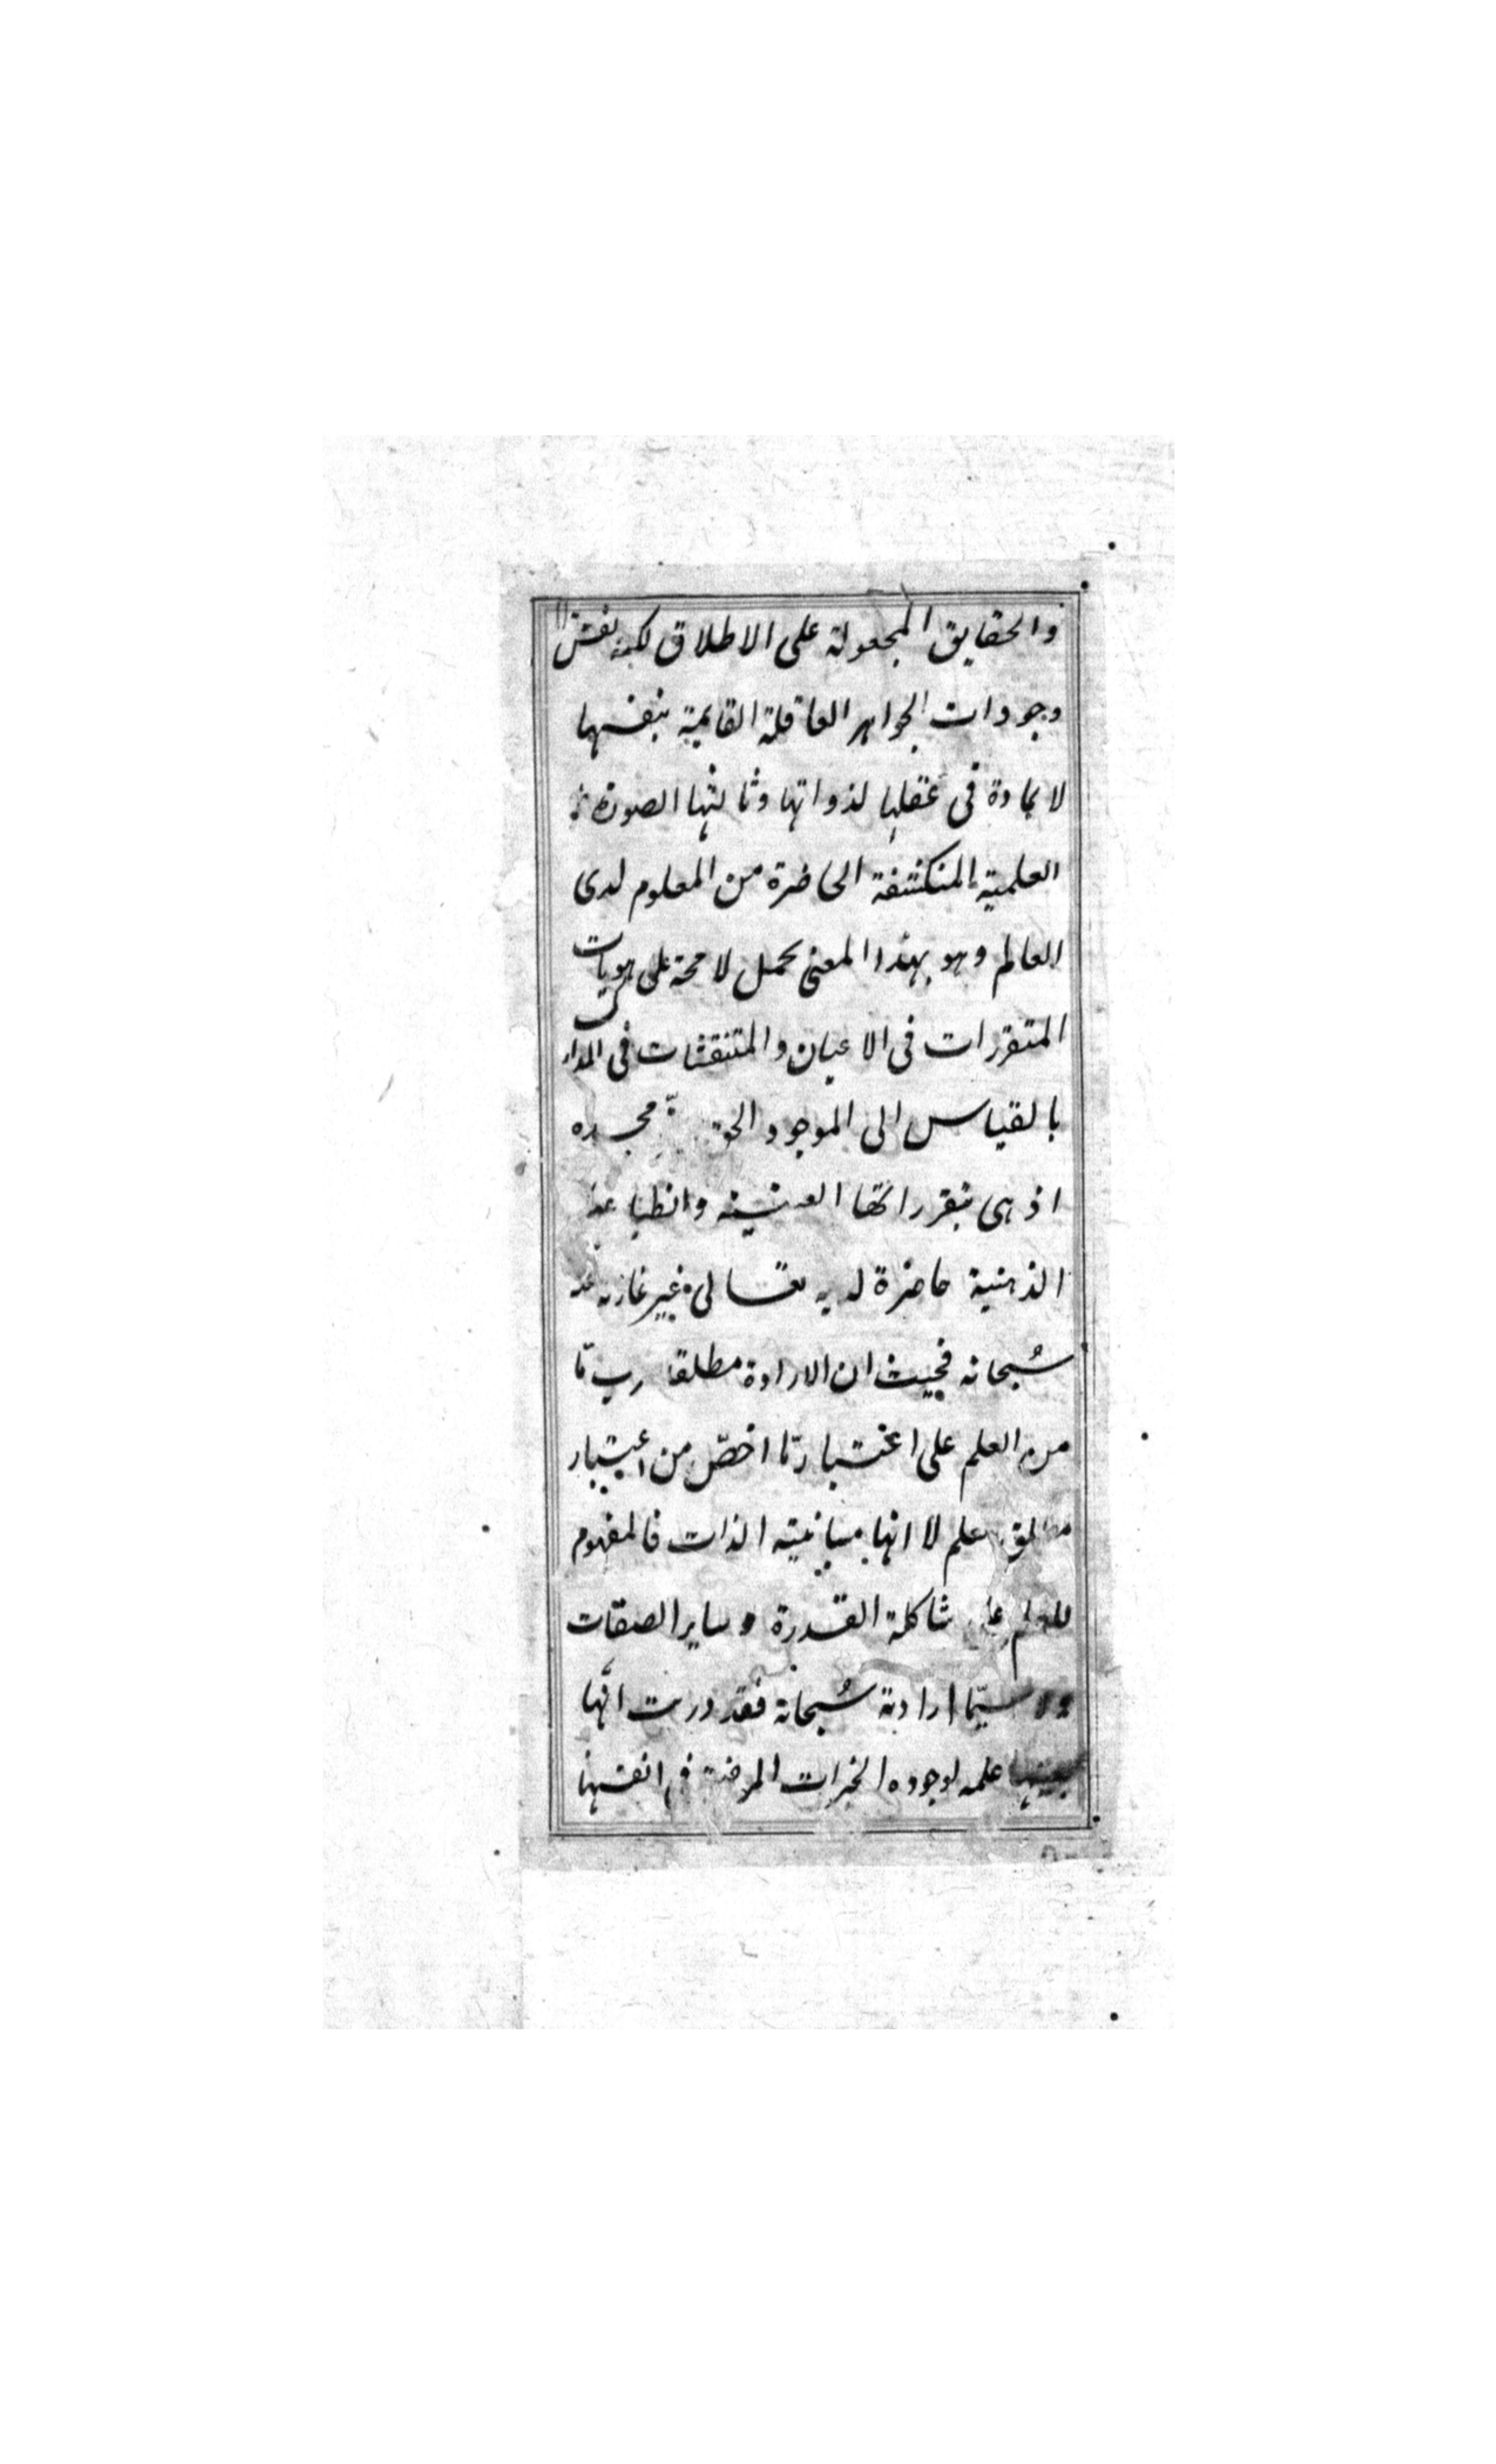 والحقايق المجعولة على الاطلاق لكنه نفس
وجودات الجواهر العاقلة القايمة بنفسها
لا بمادة فى عقلها لذواتها وثالثها الصورة
العلمية المنكشفة الحاضرة من المعلوم لدى
العالم وهو بهذا المعنى يحمل لا محة على هويات
المتقررات فى الاعيان والمتنقشات فى المدارك
بالقياس الى الموجود الحق مجده
اذ هى بتقرراتها العينية وانطباعية
الذهنية حاضرة لديه تعالى غير عازبة عنه
سُبحانه فحيث ان الارادة مطلقا ضرب مّا
من العلم على اعتبار مّا اخصّ من اعتبار
مطلق العلم لا انها مباينية الذات فالمفهوم
للعلم على شاكلة القدرة وساير الصفات
ولا سيّما ارادته سُبحانه فقد دريت انّها
بعينها علمه لوجوده الخيرات المرضية فى انفسها